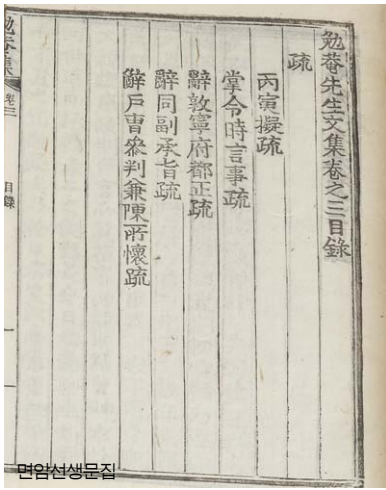 勉菴先生文集卷之三目錄
疏
丙寅擬疏
掌令時言事疏
辭敦寧府都正疏
辭同副承旨疏
辭戶曺參判兼陳所懷疏
勉菴集
卷三
目錄
一
면암선생문집